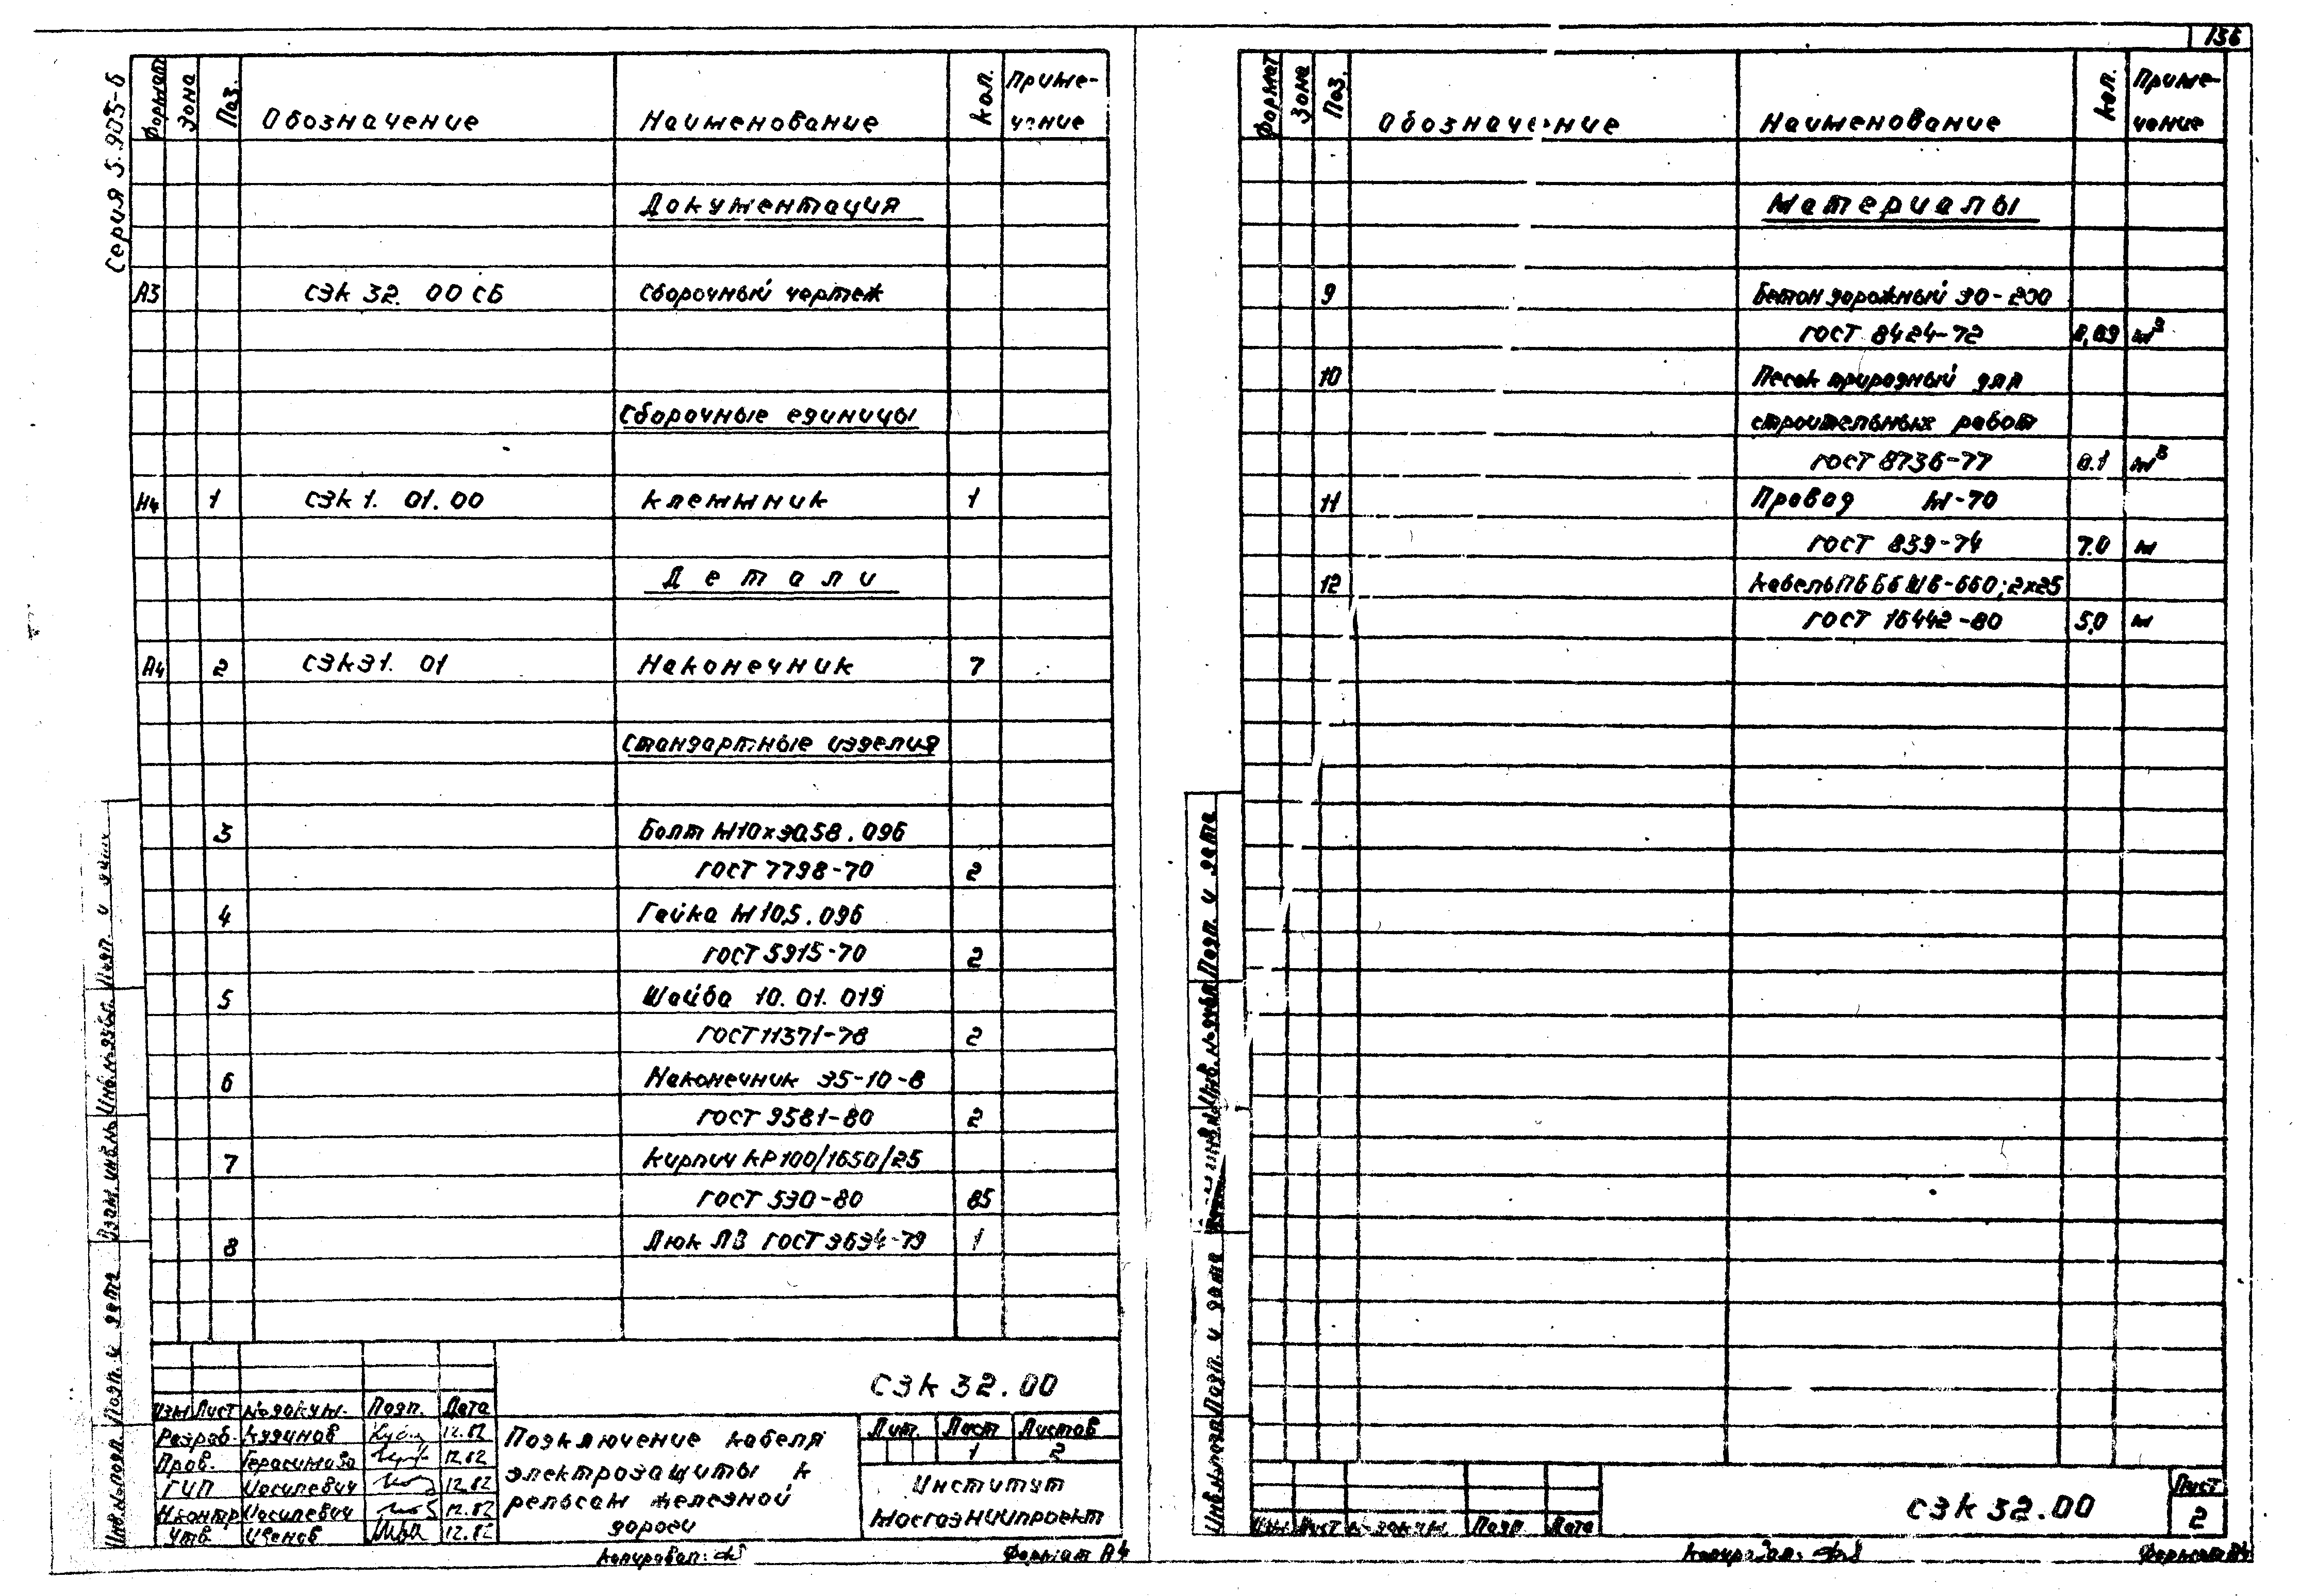 136
Серия 5.905-6
Формат Зона Поз. Обозначение Наименование Кол. Приме-
чание
Документация
А3 СЗК 32. 00 СБ Сборочный чертеж
Сборочные единицы
А4 1 СЗК 1. 01. 00 Клеммник 1
Детали
А4 2 СЗК31. 01 Наконечник 7
Стандартные изделия
3 Болт М10х30.58.096
ГОСТ 7798-70 2
4 Гайка М10.5.096
ГОСТ 5915-70 2
5 Шайба 10. 01. 019
ГОСТ 11371-78 2
6 Наконечник 35-10-8
ГОСТ 9581-80 2
7 Кирпич КР100/1650/25
ГОСТ 530-80 85
8 Люк ЛВ ГОСТ 3634-79 1
СЗК 32.00
Изм Лист № докум. Подп. Дата
Разраб. 12.82
Пров. Герасимова 12.82
ГИП Иосилевич 12.82
Н.контр Иосилевич 12.82
Утв. Иванов 12.82
Подключение кабеля
электрозащиты к
рельсам железной
дороги
Лит. Лист Листов
1 2
Институт
МосгазНИИпроект
Копировал:
Формат А4
Инв.№ подл. Подп. и дата Взам. инв.№ Инв.№ дубл. Подп. и дата
Формат Зона Поз. Обозначение Наименование Кол. Приме-
чание
Материалы
9 Бетон дорожный 30-200
ГОСТ 8424-72 0,09 м³
10 Песок природный для
строительных работ
ГОСТ 8736-77 0.1 м³
11 Провод М-70
ГОСТ 839-74 7.0 м
12 Кабель ПБбШв-660; 2х25
ГОСТ 16442-80 5,0 м
Инв.№ подл. Подп. и дата Взам. инв.№ Инв.№ дубл. Подп. и дата
Изм Лист № докум. Подп. Дата
СЗК 32.00
Лист
2
Копировал:
Формат А4